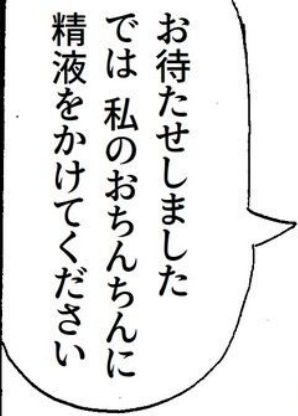 お待たせしました
では 私のおちんちんに
精液をかけてください